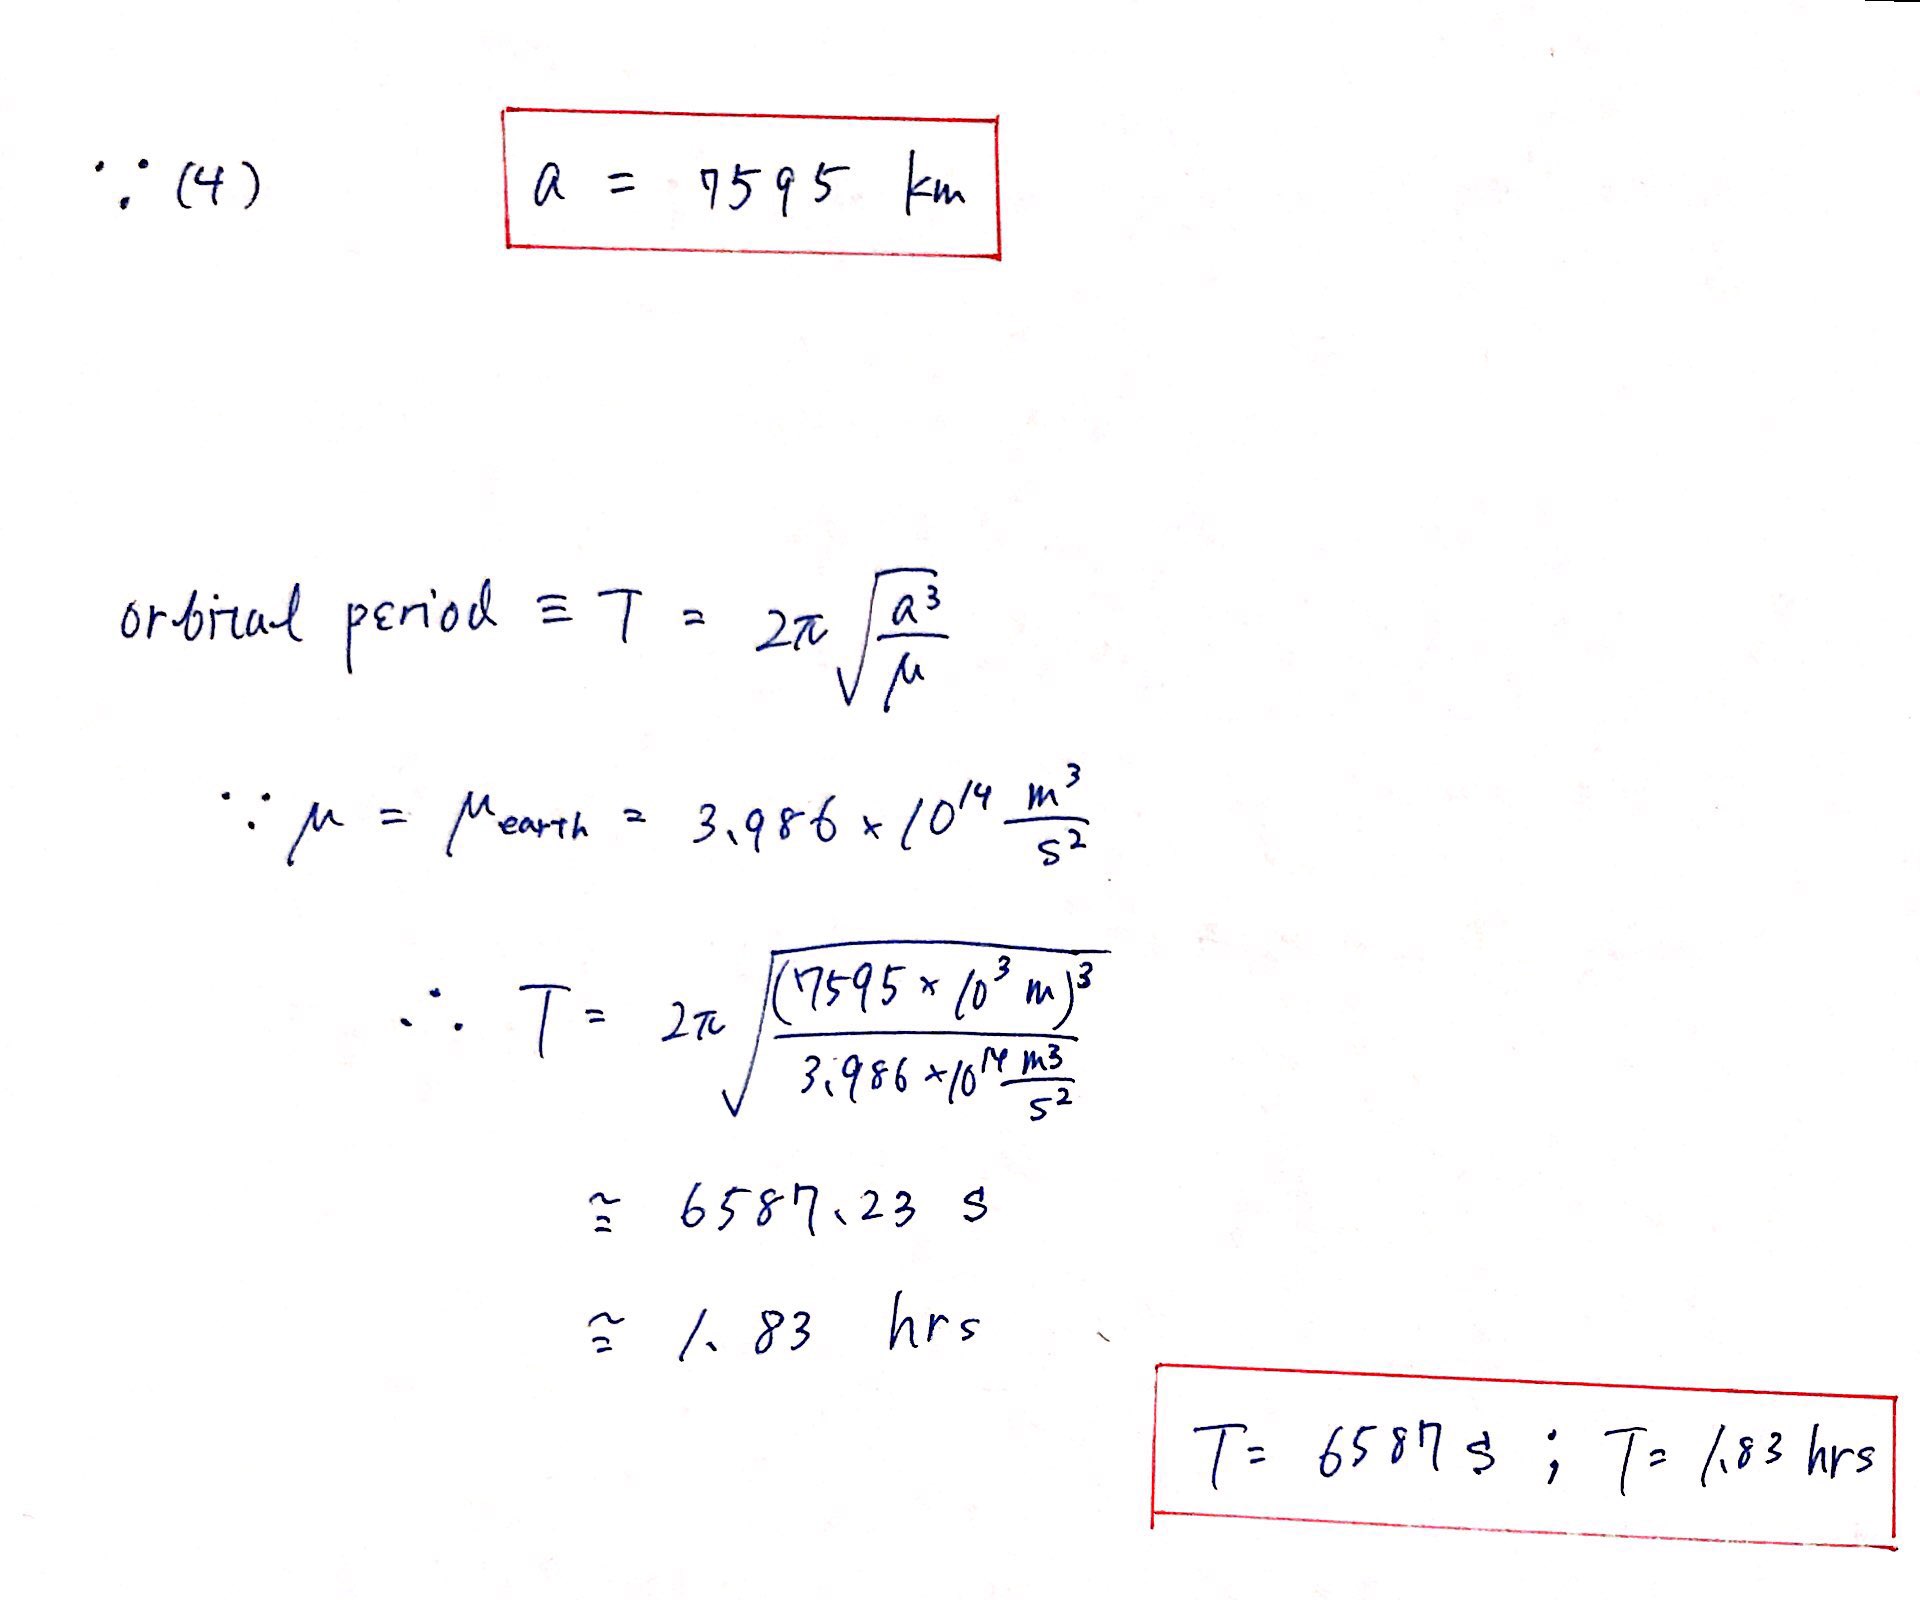 ∵ (4) a = 7595 km
orbital period ≡ T = 2π √(a³/μ)
∵ μ = μ_earth = 3.986 × 10¹⁴ m³/s²
∴ T = 2π √((7595 × 10³ m)³ / (3.986 × 10¹⁴ m³/s²))
≅ 6587.23 s
≅ 1.83 hrs
T = 6587 s ; T = 1.83 hrs